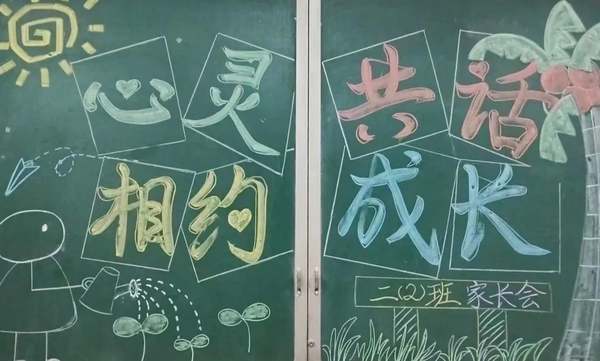 心灵
相约
共话
成长
二(2)班 家长会